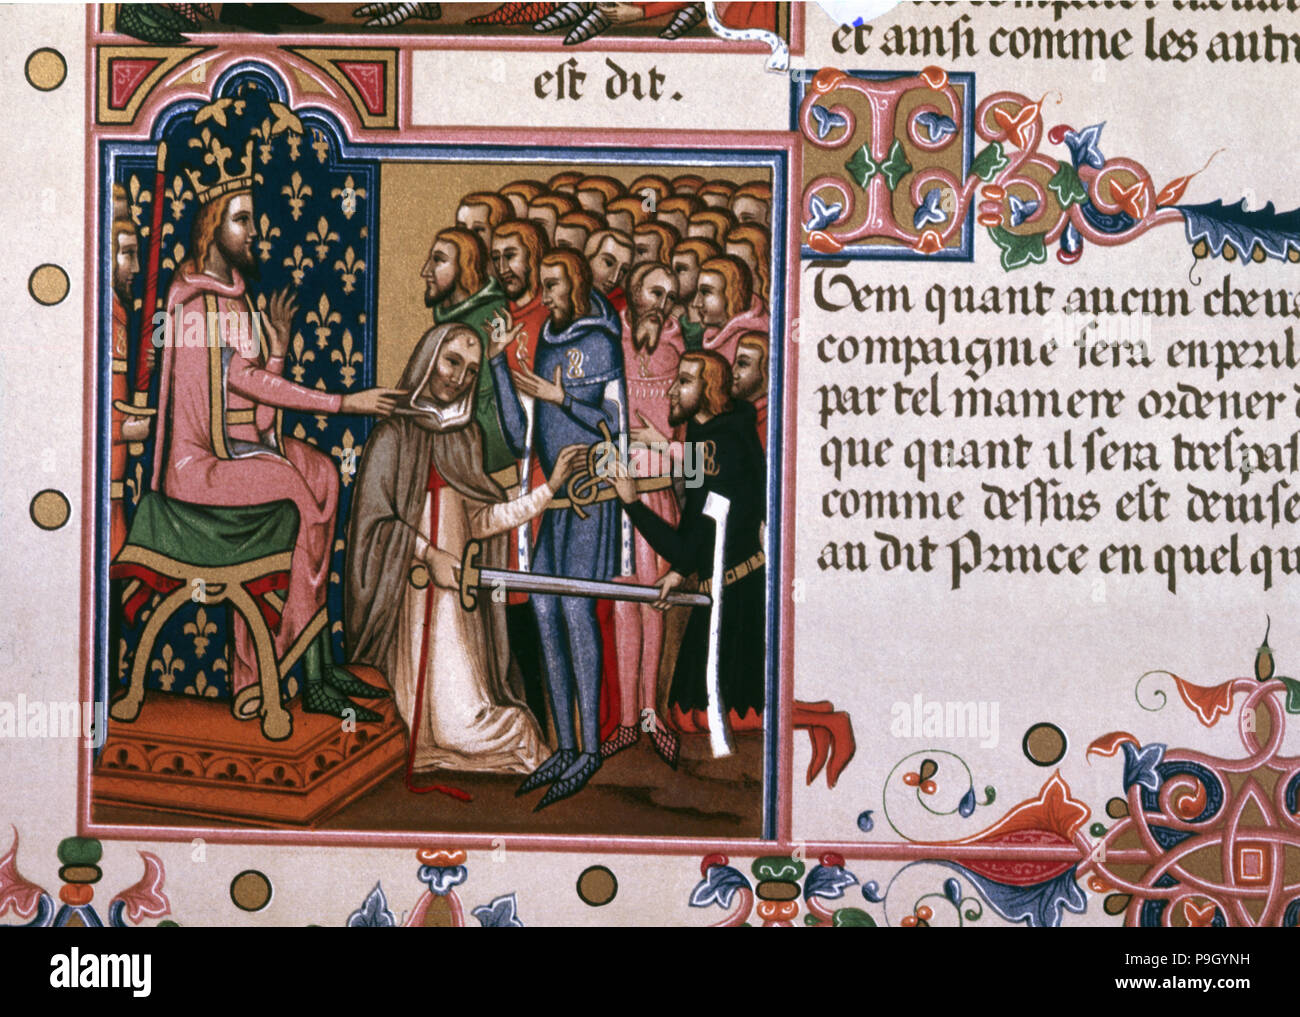 est dit.
et ainsi comme les autr
Item quant aucun cheva
compaignie sera en peril
par tel maniere ordener d
que quant il sera trespas
comme dessus est devise
au dit Prince en quel qu
alamy
Image ID: P9GYNH
www.alamy.com